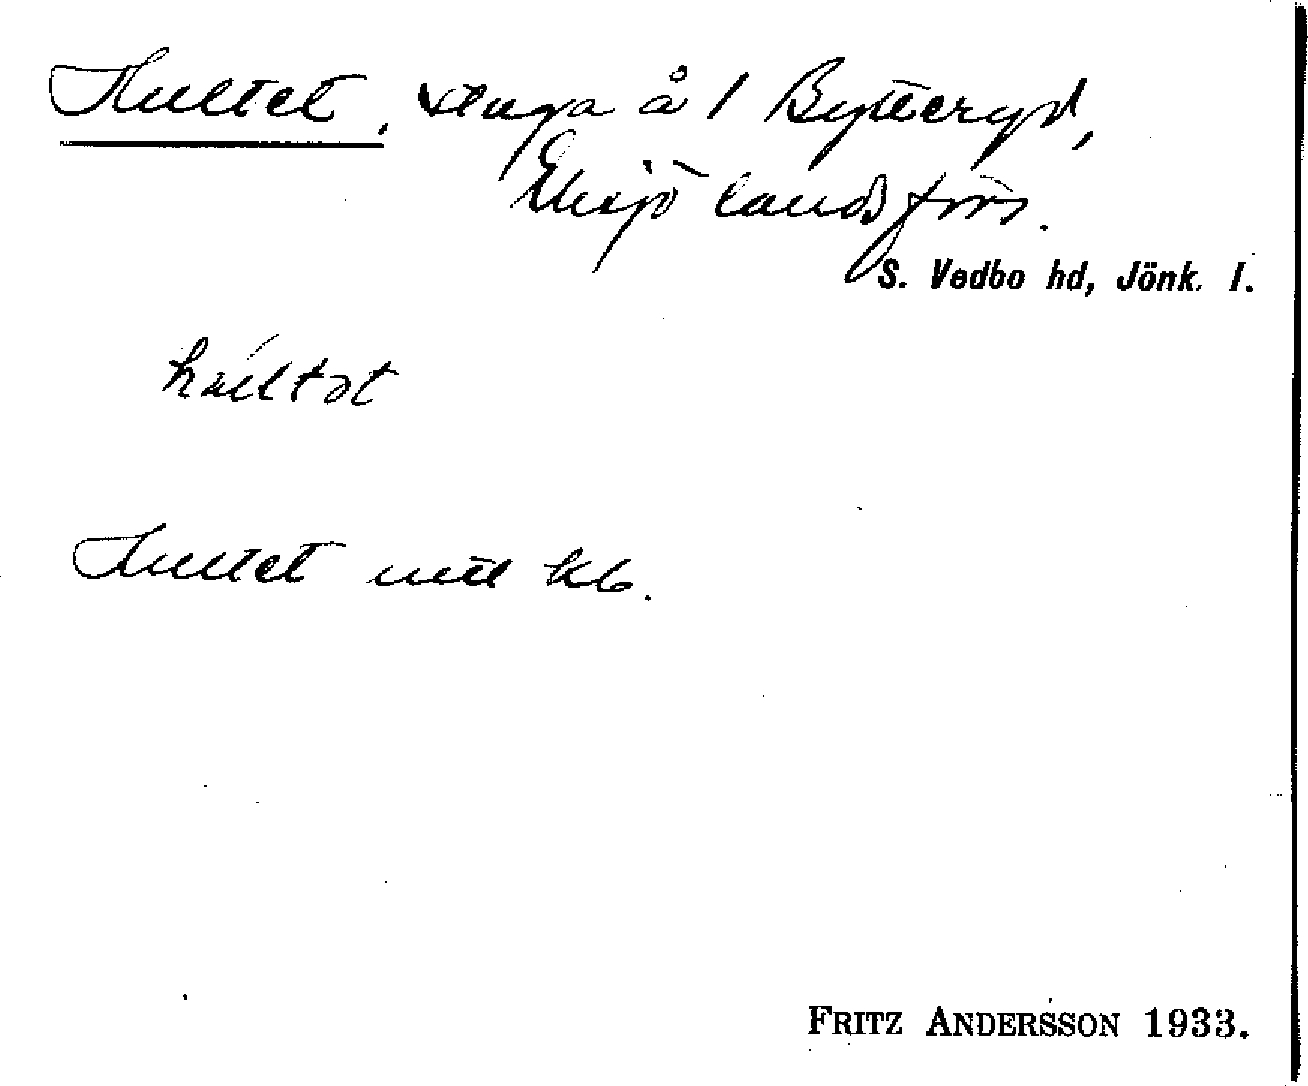 Hultet, stuga å 1 Bytteryd,
Eksjö landsförs.
S. Vedbo hd, Jönk. l.
húltət
Hultet utt kb.
FRITZ ANDERSSON 1933.